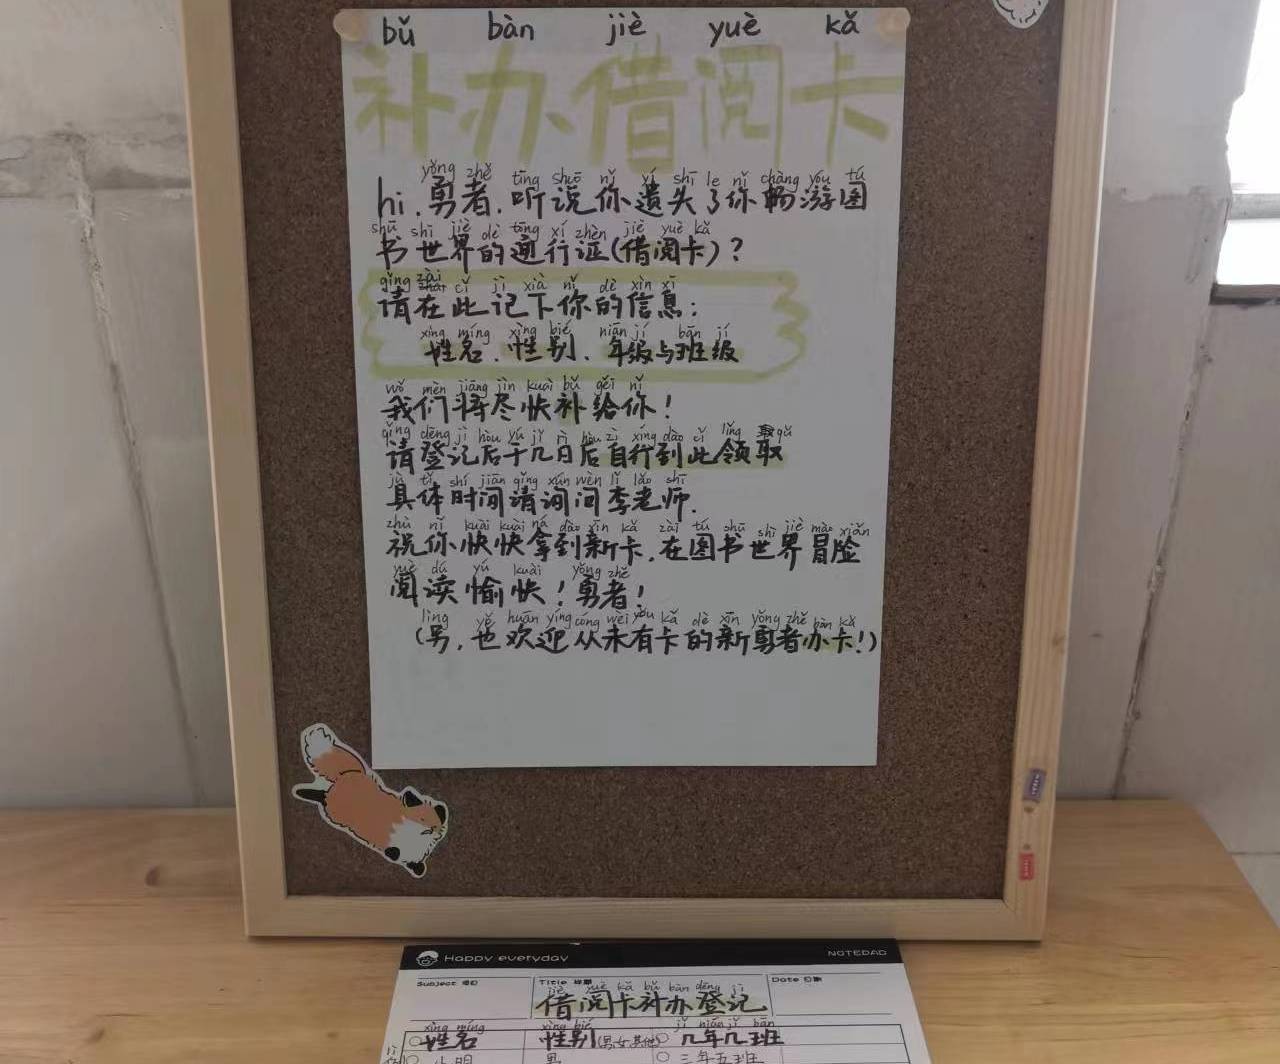 bǔ bàn jiè yuè kǎ
补办借阅卡
yǒng zhě tīng shuō nǐ yí shī le nǐ chàng yóu tú
hi,勇者,听说你遗失了你畅游图
shū shì jiè dè tōng xí zhèn jiè yuè kǎ
书世界的通行证(借阅卡)?
qǐng zài cǐ jì xià nǐ dè xìn xī
请在此记下你的信息:
xìng míng xìng bié nián jí bān jí
姓名、性别、年级与班级
wǒ mèn jiāng jìn kuài bǔ gěi nǐ
我们将尽快补给你!
qǐng dēng jì hòu yú jǐ rì hòu zì xíng dào cǐ lǐng qǔ
请登记后于几日后自行到此领取
jù tǐ shí jiān qǐng xún wèn lǐ lǎo shī
具体时间请询问李老师.
zhù nǐ kuài kuài ná dào xīn kǎ zài tú shū shì jiè mào xiǎn
祝你快快拿到新卡,在图书世界冒险
yuè dú yú kuài yǒng zhě
阅读愉快!勇者!
lìng yě huān yíng cóng wèi yǒu kǎ dè xīn yǒng zhě bàn kǎ
(另,也欢迎从未有卡的新勇者办卡!)
Happy everyday NOTEPAD
Subject 项目 Title 标题 Date 日期
jiè yuè kǎ bǔ bàn dēng jì
借阅卡补办登记
xìng míng xìng bié jǐ nián jǐ bān
姓名 性别(男女其他) 几年几班
小明 男 三年五班